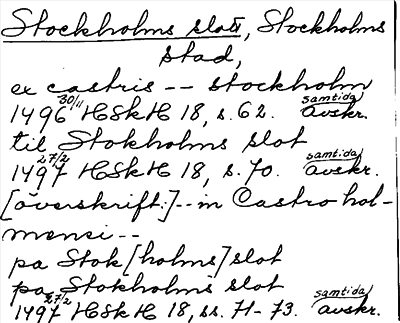 Stockholms slott, Stockholms
stad,
ex castris -- stockholm
1496 30/11 HSkH 18, s. 62. samtida avskr.
til Stokholms slot
1497 27/2 HSkH 18, s. 70. samtida avskr.
[överskrift:] -- in Castro hol-
mensi --
pa Stok[holms] slot
pa Stokholms slot
1497 27/2 HSkH 18, ss. 71-73. samtida avskr.